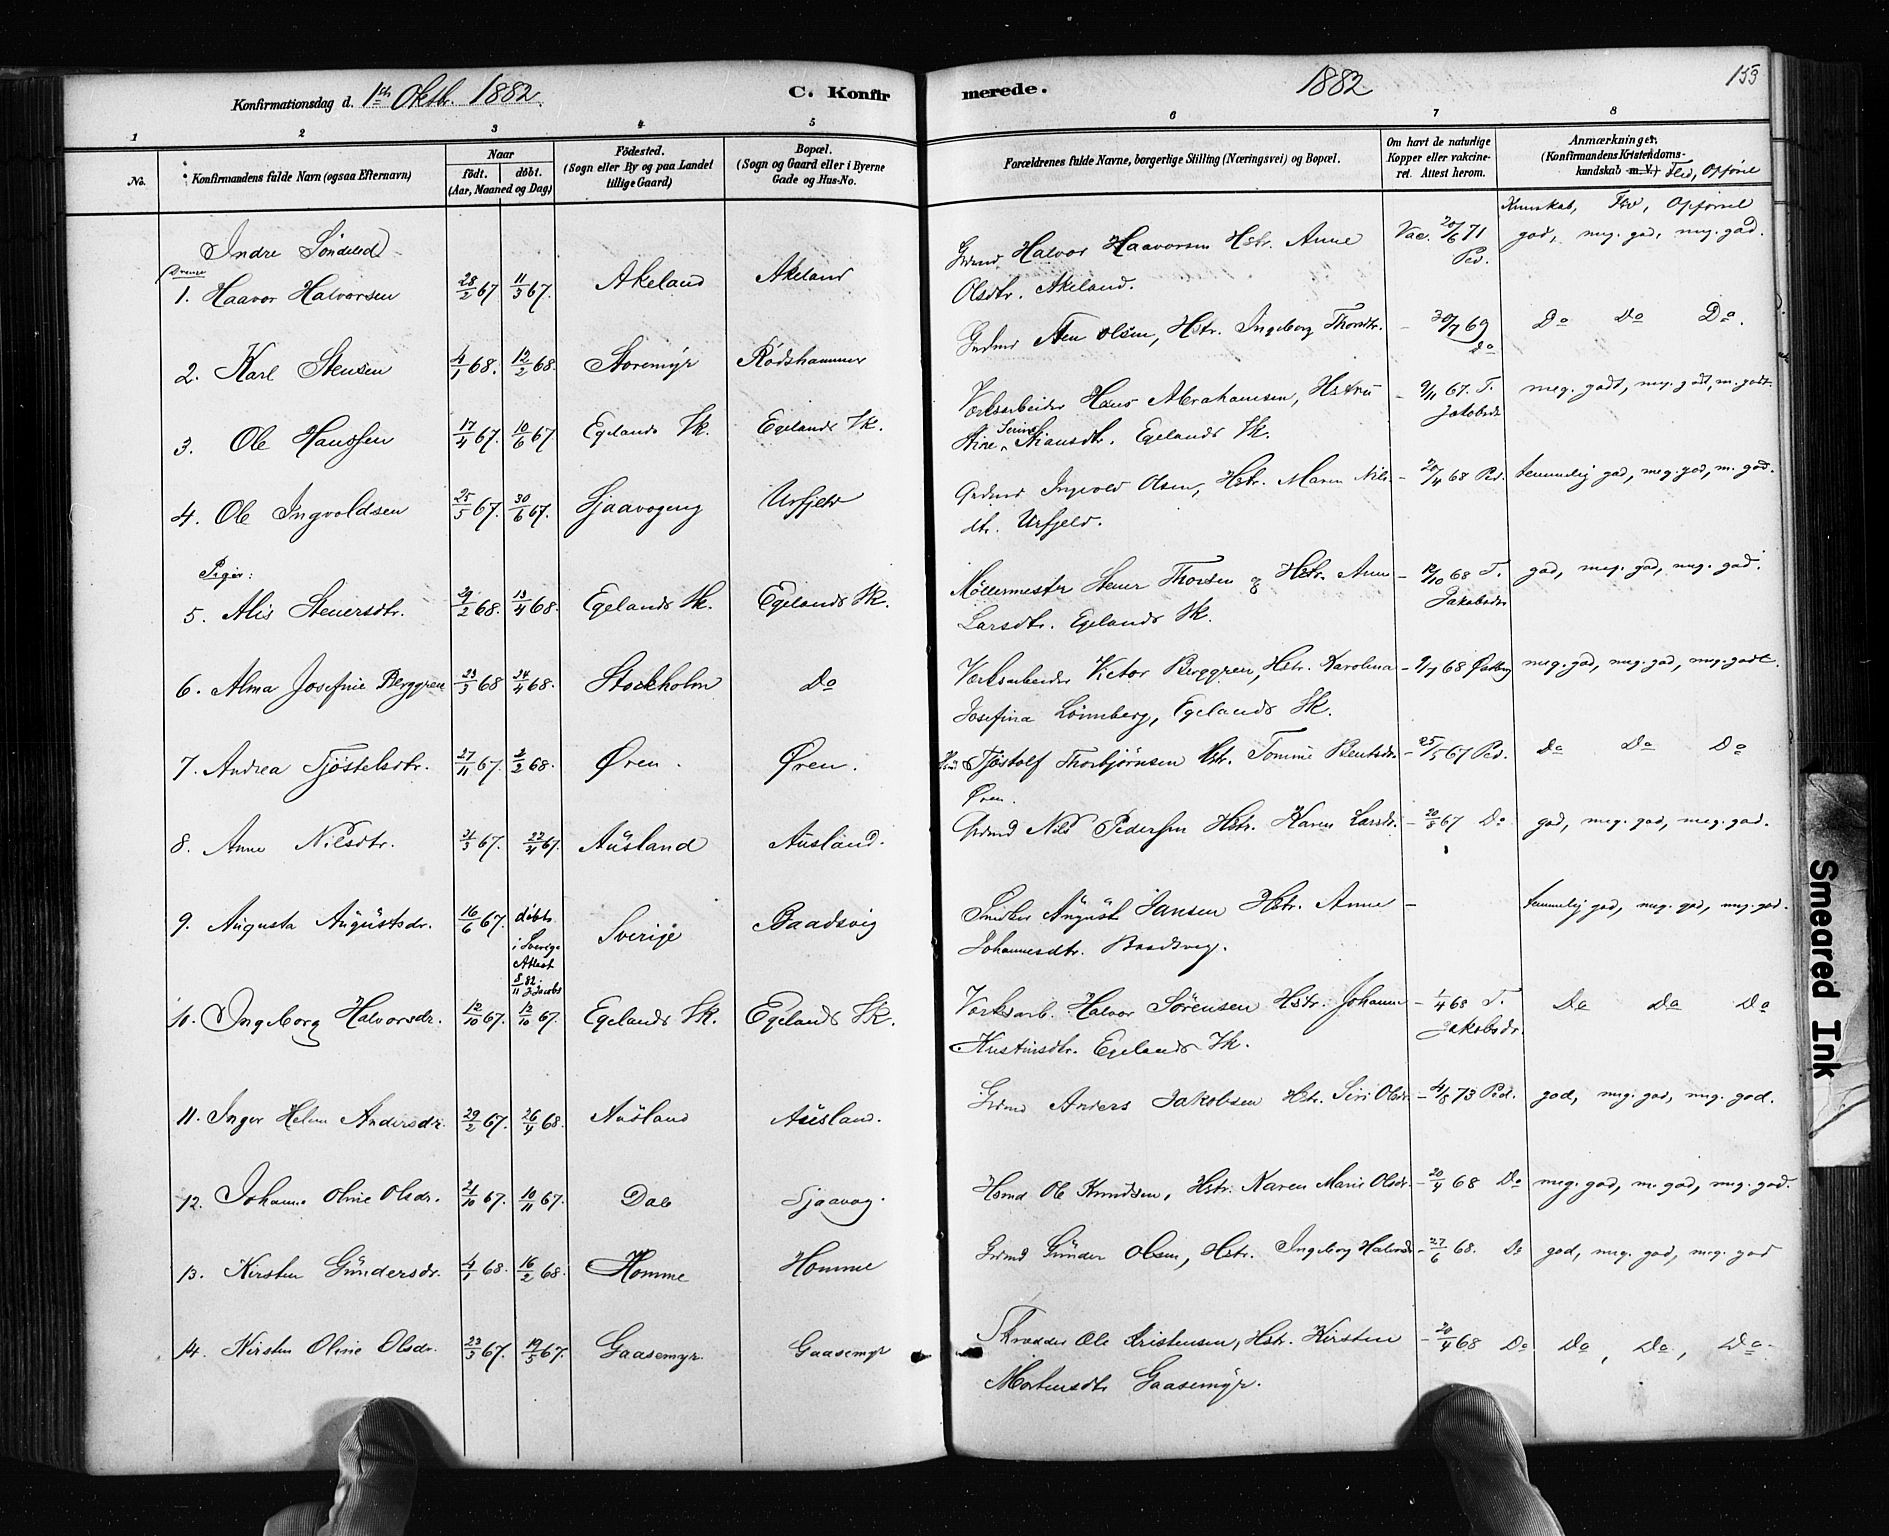 Konfirmationsdag d. 1ste Oktbr. 1882.
C. Konfirmerede.
1882
153
1 2 3 4 5 6 7 8
No.
Konfirmandens fulde Navn (ogsaa Efternavn)
Naar
født. døbt.
(Aar, Maaned og Dag)
Fødested.
(Sogn eller By og paa Landet
tillige Gaard)
Bopæl.
(Sogn og Gaard eller i Byerne
Gade og Hus-No.
Forældrenes fulde Navne, borgerlige Stilling (Næringsvei) og Bopæl.
Om havt de naturlige
Kopper eller vakcine-
ret. Attest herom.
Anmærkninger.
(Konfirmandens Kristendoms-
kundskab m.V.) Flid, Opførsel
Kunskab, Flid, Opførsel
Indre Søndeled
Drenge
1. Haavor Halvorsen 28/2 67 11/3 67. Akeland Akeland Grdmd Halvor Haavorsen Hstr. Anne Vac. 20/6 71 Ped. god, meg. god, meg. god.
Olsdtr. Akeland.
2. Karl Stensen 4/1 68. 12/2 68. Storemyr Rødshammer Grdmd Sten Olsen, Hstr. Ingeborg Thorsdtr. - 30/7 69 Do Do Do Do.
3. Ole Hanssen 17/4 67. 10/6 67 Egelands Vk. Egelands Vk. Værksarbeider Hans Abrahamsen, Hstru - 9/11 67. T. Jakobsdr meg. godt, meg. godt, m. godt.
Stine Serine Stiansdtr. Egelands Vk.
4. Ole Ingvoldsen 25/5 67. 30/6 67. Sjaavogeng Urfjeld Grdmd Ingvold Olsen, Hstr. Maren Nils- - 20/4 68 Ped. temmelig god, meg. god, m. god.
dtr. Urfjeld.
Piger:
5. Alis Stenersdtr. 29/2 68. 13/4 68. Egelands Vk. Egelands Vk. Møllermester Stener Thorsen og Hstr. Anne - 12/10 68 T. Jakobsdr god, meg. god, meg. god.
Larsdtr. Egelands Vk.
6. Alma Josefine Berggren 23/3 68 24/4 68. Stockholm Do Værksarbeider Victor Berggren, Hstr. Karolina - 9/7 68 meg. god, meg. god, meg. godt.
Josefina Lönnberg, Egelands Vk.
7. Andrea Tjøstelsdtr. 27/11 67. 2/2 68. Øren. Øren. Tjøstolf Thorbjørnsen Hstr. Tomine Bentsdr. - 25/5 67 Ped. Do Do Do
Øren.
8. Anne Nilsdtr. 31/3 67. 22/4 67. Ausland Ausland. Grdmd Nils Pedersen Hstr. Karen Larsdr. - 20/5 67 Do god, meg. god, meg. god.
9. Augusta Augustsdr. 16/6 67. døbt. i Sverige Attest 8/11 82. J. Jacobs Sverige Baadsvig Snedker August Jansen Hstr. Anne - temmelig god, meg. god, meg. god.
Johannesdtr. Baadsvig.
10. Ingeborg Halvorsdr. 12/10 67. 12/10 67. Egelands Vk. Egelands Vk. Værksarb. Halvor Sørensen Hstr. Johanne - 1/4 68 T. Jakobsdr. Do Do Do
Kristinsdtr. Egelands Vk.
11. Inger Helene Andersdr. 29/2 67. 26/4 68. Ausland Ausland. Grdmd Anders Jakobsen Hstr. Siri Olsdr. - 4/8 73 Ped. god, meg. god, meg. god.
12. Johanne Oline Olsdr. 21/10 67. 10/11 67. Dale Sjaavog. Hsmd Ole Knudsen, Hstr. Karen Marie Olsdr. - 20/4 68 Do meg. god, m. god, meg. god.
13. Kirsten Gundersdr. 4/1 68. 16/2 68. Homme Homme Grdmd Gunder Olsen, Hstr. Ingeborg Halvorsdr - 27/6 68. Do god, meg. god, meg. god
14. Kirsten Oline Olsdr. 23/3 67. 19/5 67. Gaasemyr. Gaasemyr Skrædder Ole Kristensen, Hstr. Kirsten - 20/4 68 Do Do, Do, Do.
Mortensdtr Gaasemyr.
Smeared Ink